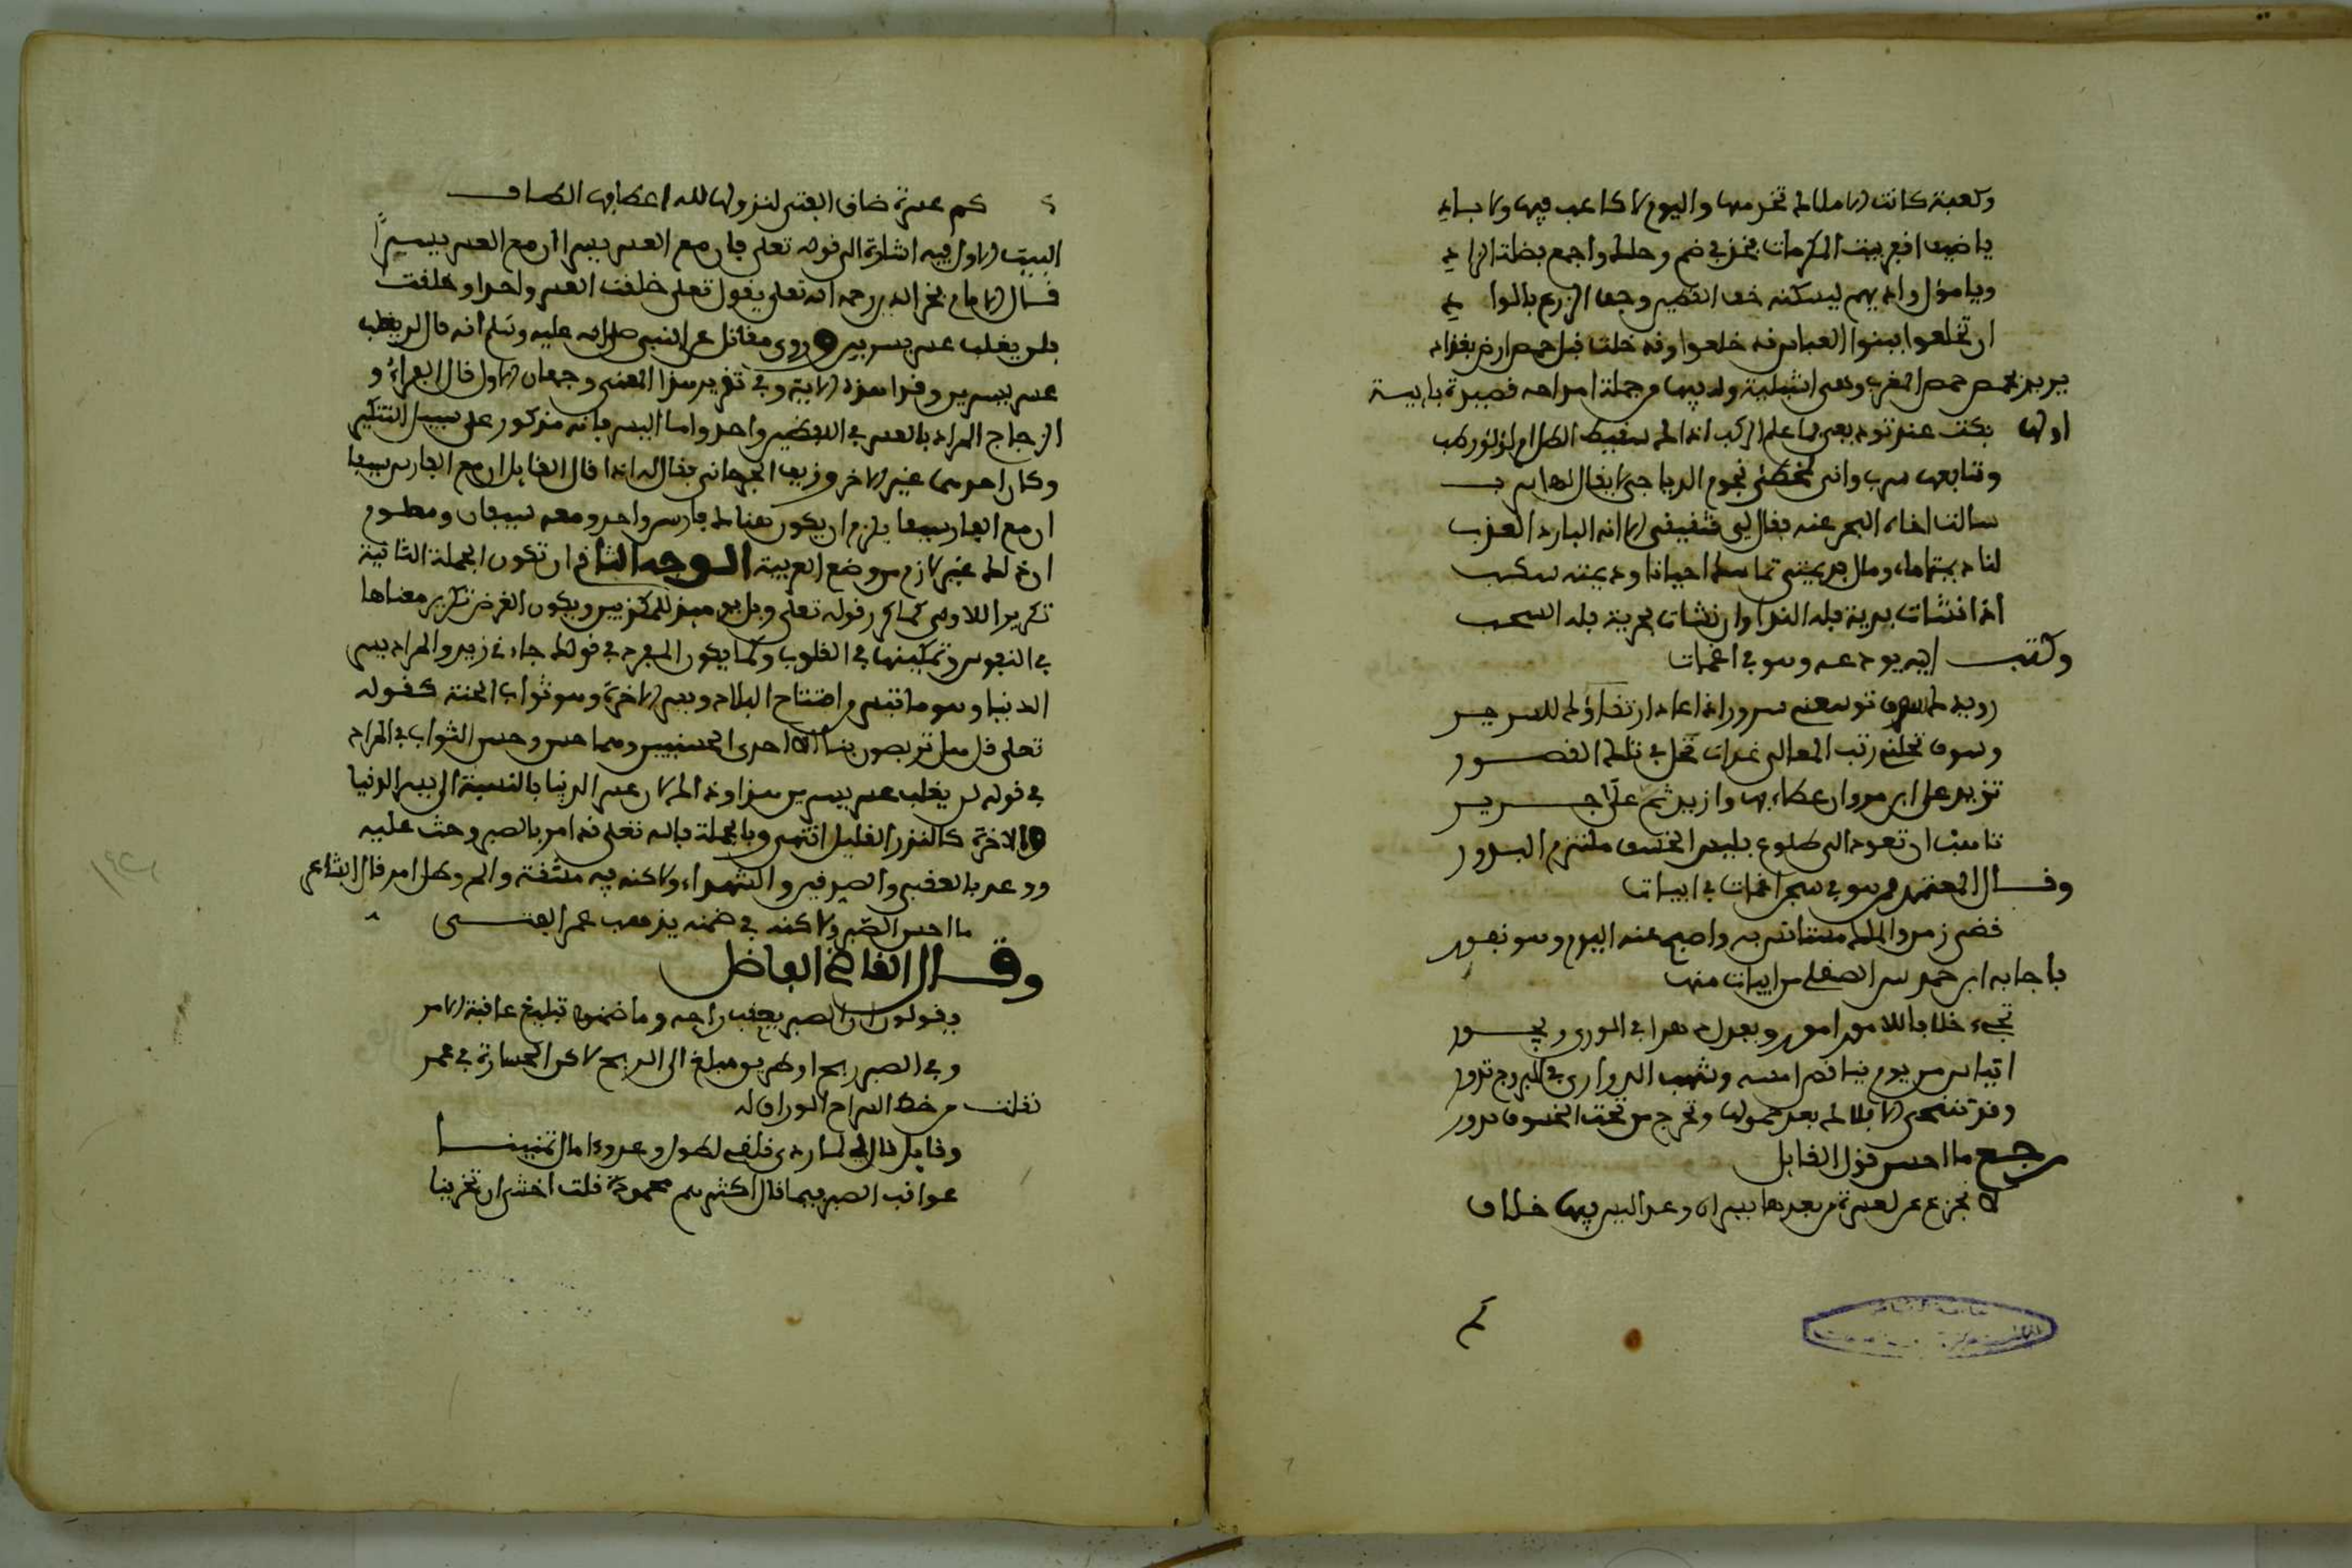 وكعبة كانت الامال تخدمها واليوم لا عاكف فيها ولا باد
يا ضيف افقر بيت المكرمات فخذ في ضم رحلك واجمع فضلة الزاد
ويا مؤمل واديهم ليسكنه خف القطين وجف الزرع بالواد
ان تخلعوا فبنوا العباس قد خلعوا وقد خلت قبل حمص ارض بغداد
يريد بحمص حمص المغرب وهي اشبيلية وله فيها من جملة امداحه قصيدة بايية
اولها بكت عند توديعي فما علم الركب اذاك سقيط الطل ام لؤلؤ رطب
وتابعها سرب واني لمخطئ نجوم الدياجي لا يقال لها سرب
سالت اخاه البحر عنه فقال لي شقيقي الا انه البارد العذب
لنا ديمتا ماء ومال فديمتي تماسك احيانا وديمته سكب
اذا نشات برية فله الندا وان نشات بحرية فله السحب
وكتب اليه يودعه وهو في اغمات
رويدك سوف توسعني سرورا اذا عاد ارتقاؤك للسرير
وسوف تحلني رتب المعالي غداة تحل في تلك القصور
تزيد على ابن مروان عطاء بها وازيد ثم على جرير
تاهب ان تعود الى طلوع فليس الخسف ملتزم البدور
وقال المعتمد وهو في سجن اغمات في ابيات
قضى زمن والملك مستانس به واصبح عنه اليوم وهو نفور
فاجابه ابن حمديس الصقلي من ابيات منها
تجيء خلافا للامور امور ويعدل دهر في الورى ويجور
اتياس من يوم يناقض امسه وشهب الدراري في البروج تدور
وقد تنتحي الاملاك بعد خمولها وتخرج من تحت الخسوف بدور
رجع ما احسن قول القايل
لا تجزعن لعسرة من بعدها يسران وعد اليس فيها خلاف
كم عسرة ضاق الفتى لنزولها لله في اعطافها الطاف
البيت الاول فيه اشارة الى قوله تعلى فان مع العسر يسرا ان مع العسر يسرا
قال الامام فخر الدين رحمه الله تعلى يقول تعلى خلقت العسر واحدا وخلقت
فلن يغلب عسر يسرين وروى مقاتل عن النبي صلى الله عليه وسلم انه قال لن يغلب
عسر يسرين وقرا هذه الاية وفي تقرير هذا المعنى وجهان الاول قال الفراء و
الزجاج المراد بالعسر في اللفظين واحد واما اليسر فانه مذكور على سبيل التنكير
وكان احدهما غير الاخر وزيف الجرجاني فقال له اذا قال القايل ان مع الفارس سيفا
ان مع الفارس سيفا يلزم ان يكون هناك فارس واحد ومعه سيفان ومعلوم
ان ذلك غير لازم من وضع العربية الوجه الثاني ان تكون الجملة الثانية
تكريرا للاولى كما كرر قوله تعلى ويل يومئذ للمكذبين ويكون الغرض تكرير معناها
في النفوس وتمكينها في القلوب وكما يكرر المفرد في قولك جاءني زيد والمراد يسر
الدنيا وهو ما تيسر من افتتاح البلاد ويسر الاخرة وهو ثواب الجنة كقوله
تعلى قل هل تربصون بنا الا احدى الحسنيين وهما حسن وحسن الثواب في المراد
في قوله لن يغلب عسر يسرين هذا وذلك لان عسر الدنيا بالنسبة الى يسر الدنيا
والاخرة كالنزر القليل انتهى وبالجملة فالله تعلى قد امر بالصبر وحث عليه
ووعد بالعقبى والصبر فيه ولاكنه فيه مشقة والم وطل امر قال الشاعر
ما احسن الصبر ولاكنه في ضمنه يذهب عمر الفتى
وقال القاضي الفاضل
يقولون ان الصبر يعقب راحه وما ضمنوا تبليغ عاقبة الامر
وفي الصبر ربح او طريق مبلغ الى الربح لاكن الخسارة في عمر
نقلت من خط السراج الوراق له
وقايل قال لي لما راى قلقي لطول وعد وامال تمنينا
عواقب الصبر فيما قال اكثرهم محمودة قلت اخشى ان تخرينا